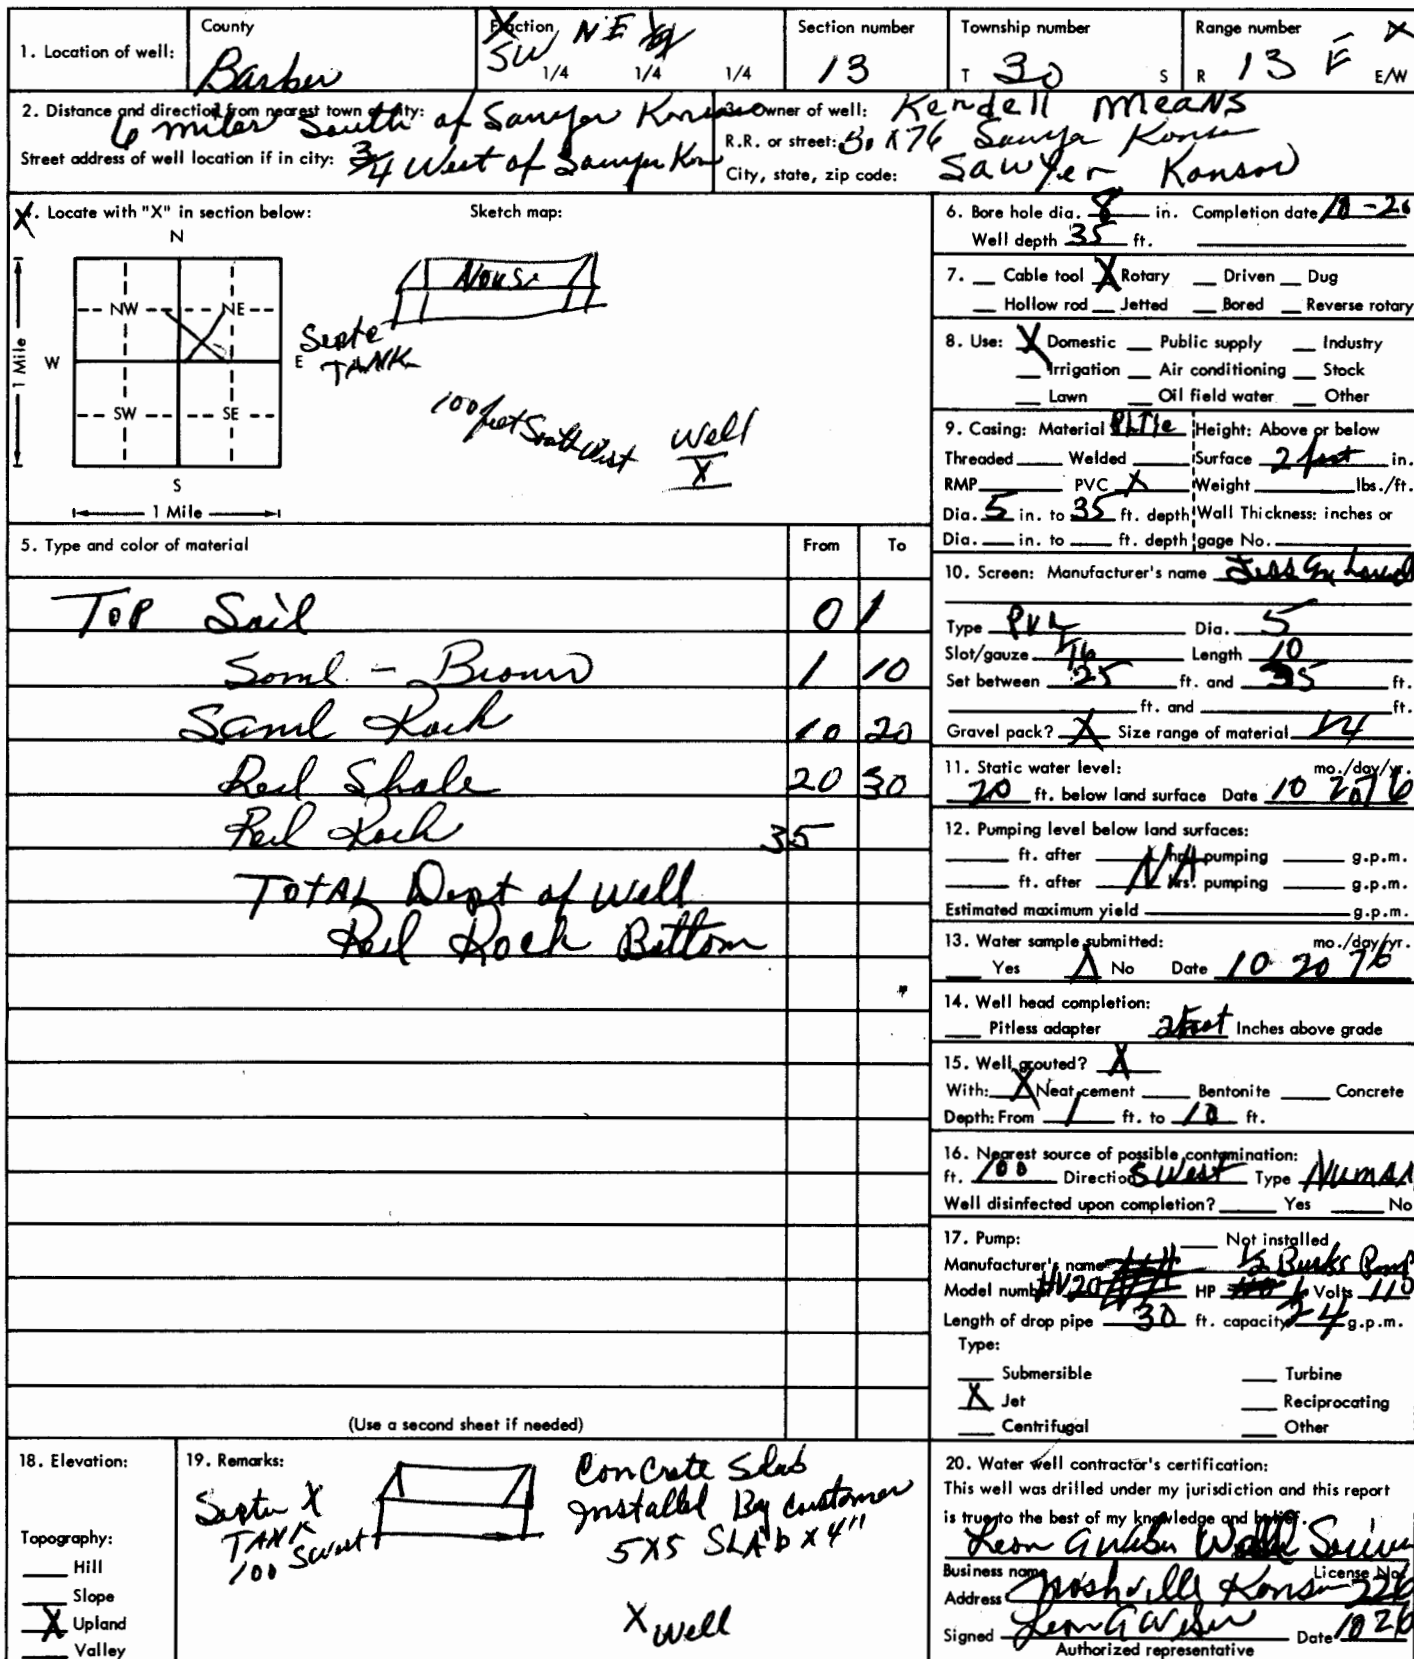 1. Location of well:
County
Barber
Fraction
SW NE
1/4 1/4 1/4
Section number
13
Township number
T 30 S
Range number
R 13 E E/W
2. Distance and direction from nearest town or city:
6 miles South of Sawyer Kansas
Street address of well location if in city: 3/4 West of Sawyer Kan
3. Owner of well: Kendell Means
R.R. or street: Box 76 Sawyer Kansa
City, state, zip code: Sawyer Kansas
4. Locate with "X" in section below:
Sketch map:
N
NW NE
W E
SW SE
S
1 Mile
1 Mile
House
Septe
TANK
100 feet South West
Well
X
5. Type and color of material From To
Top Soil 0 1
Sand - Brown 1 10
Sand Rock 10 20
Red Shale 20 30
Red Rock 35
TOTAL Dept of Well
Red Rock Bottom
(Use a second sheet if needed)
6. Bore hole dia. 8 in. Completion date 10-20
Well depth 35 ft.
7. Cable tool X Rotary Driven Dug
Hollow rod Jetted Bored Reverse rotary
8. Use: X Domestic Public supply Industry
Irrigation Air conditioning Stock
Lawn Oil field water Other
9. Casing: Material Height: Above or below
Threaded Welded Surface 2 feet in.
RMP PVC X Weight lbs./ft.
Dia. 5 in. to 35 ft. depth Wall Thickness: inches or
Dia. in. to ft. depth gage No.
10. Screen: Manufacturer's name
Type PVC Dia. 5
Slot/gauze 1/16 Length 10
Set between 25 ft. and 35 ft.
ft. and ft.
Gravel pack? X Size range of material 1/4
11. Static water level: mo./day/yr.
20 ft. below land surface Date 10 20 76
12. Pumping level below land surfaces:
ft. after hrs. pumping g.p.m.
NA
ft. after hrs. pumping g.p.m.
Estimated maximum yield g.p.m.
13. Water sample submitted: mo./day/yr.
Yes X No Date 10 20 76
14. Well head completion:
Pitless adapter 2 feet Inches above grade
15. Well grouted? X
With: X Neat cement Bentonite Concrete
Depth: From 1 ft. to 10 ft.
16. Nearest source of possible contamination:
ft. 100 Direction S West Type Human
Well disinfected upon completion? Yes No
17. Pump: Not installed
Manufacturer's name 1/2 Burks Pump
Model number HV20 HP Volts 110
Length of drop pipe 30 ft. capacity 24 g.p.m.
Type:
Submersible Turbine
X Jet Reciprocating
Centrifugal Other
18. Elevation:
Topography:
Hill
Slope
X Upland
Valley
19. Remarks:
X
TANK
100 Swest
Concrete Slab
Installed By Customer
5X5 SLAb x 4"
X Well
20. Water well contractor's certification:
This well was drilled under my jurisdiction and this report
is true to the best of my knowledge and belief.
Leon A Weber Well
Business name License No.
Address Nashville Kansa 226
Signed Leon A Weber Date 10 26
Authorized representative